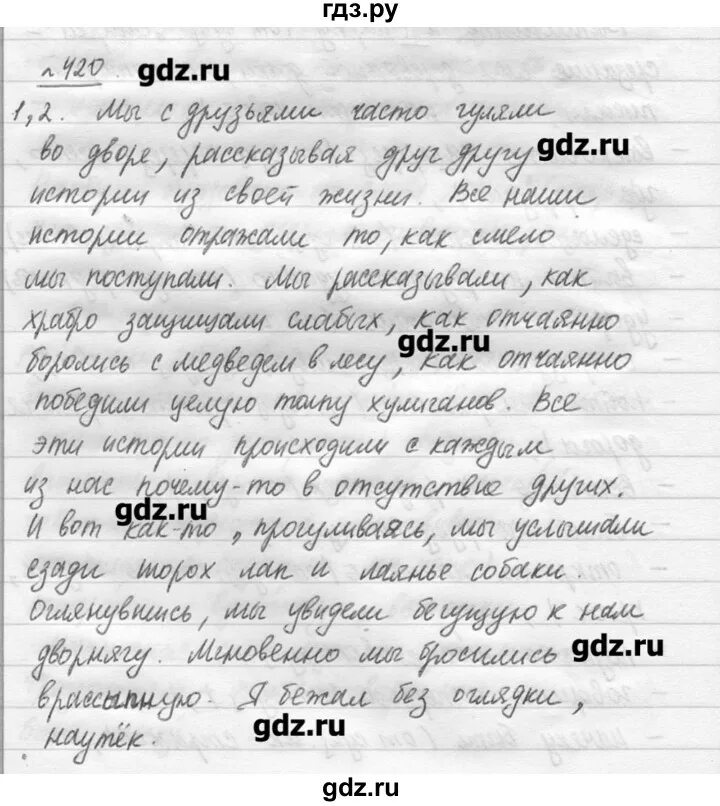 гдз.ру
n. 420 gdz.ru
1,2. Мы с друзьями часто гуляли
во дворе, рассказывая друг другу gdz.ru
истории из своей жизни. Все наши
истории отражали то, как смело
мы поступали. Мы рассказывали, как
храбро защищали слабых, как отчаянно
gdz.ru
боролись с медведем в лесу, как отчаянно
победили целую толпу хулиганов. Все
эти истории происходили с каждым
из нас почему-то в отсутствие других.
gdz.ru
И вот как-то, прогуливаясь, мы услышали
сзади шорох лап и лаянье собаки.
Оглянувшись, мы увидели бегущую к нам
дворнягу. Мгновенно мы бросились gdz.ru
врассыпную. Я бежал без оглядки,
наутёк. gdz.ru
gdz.ru